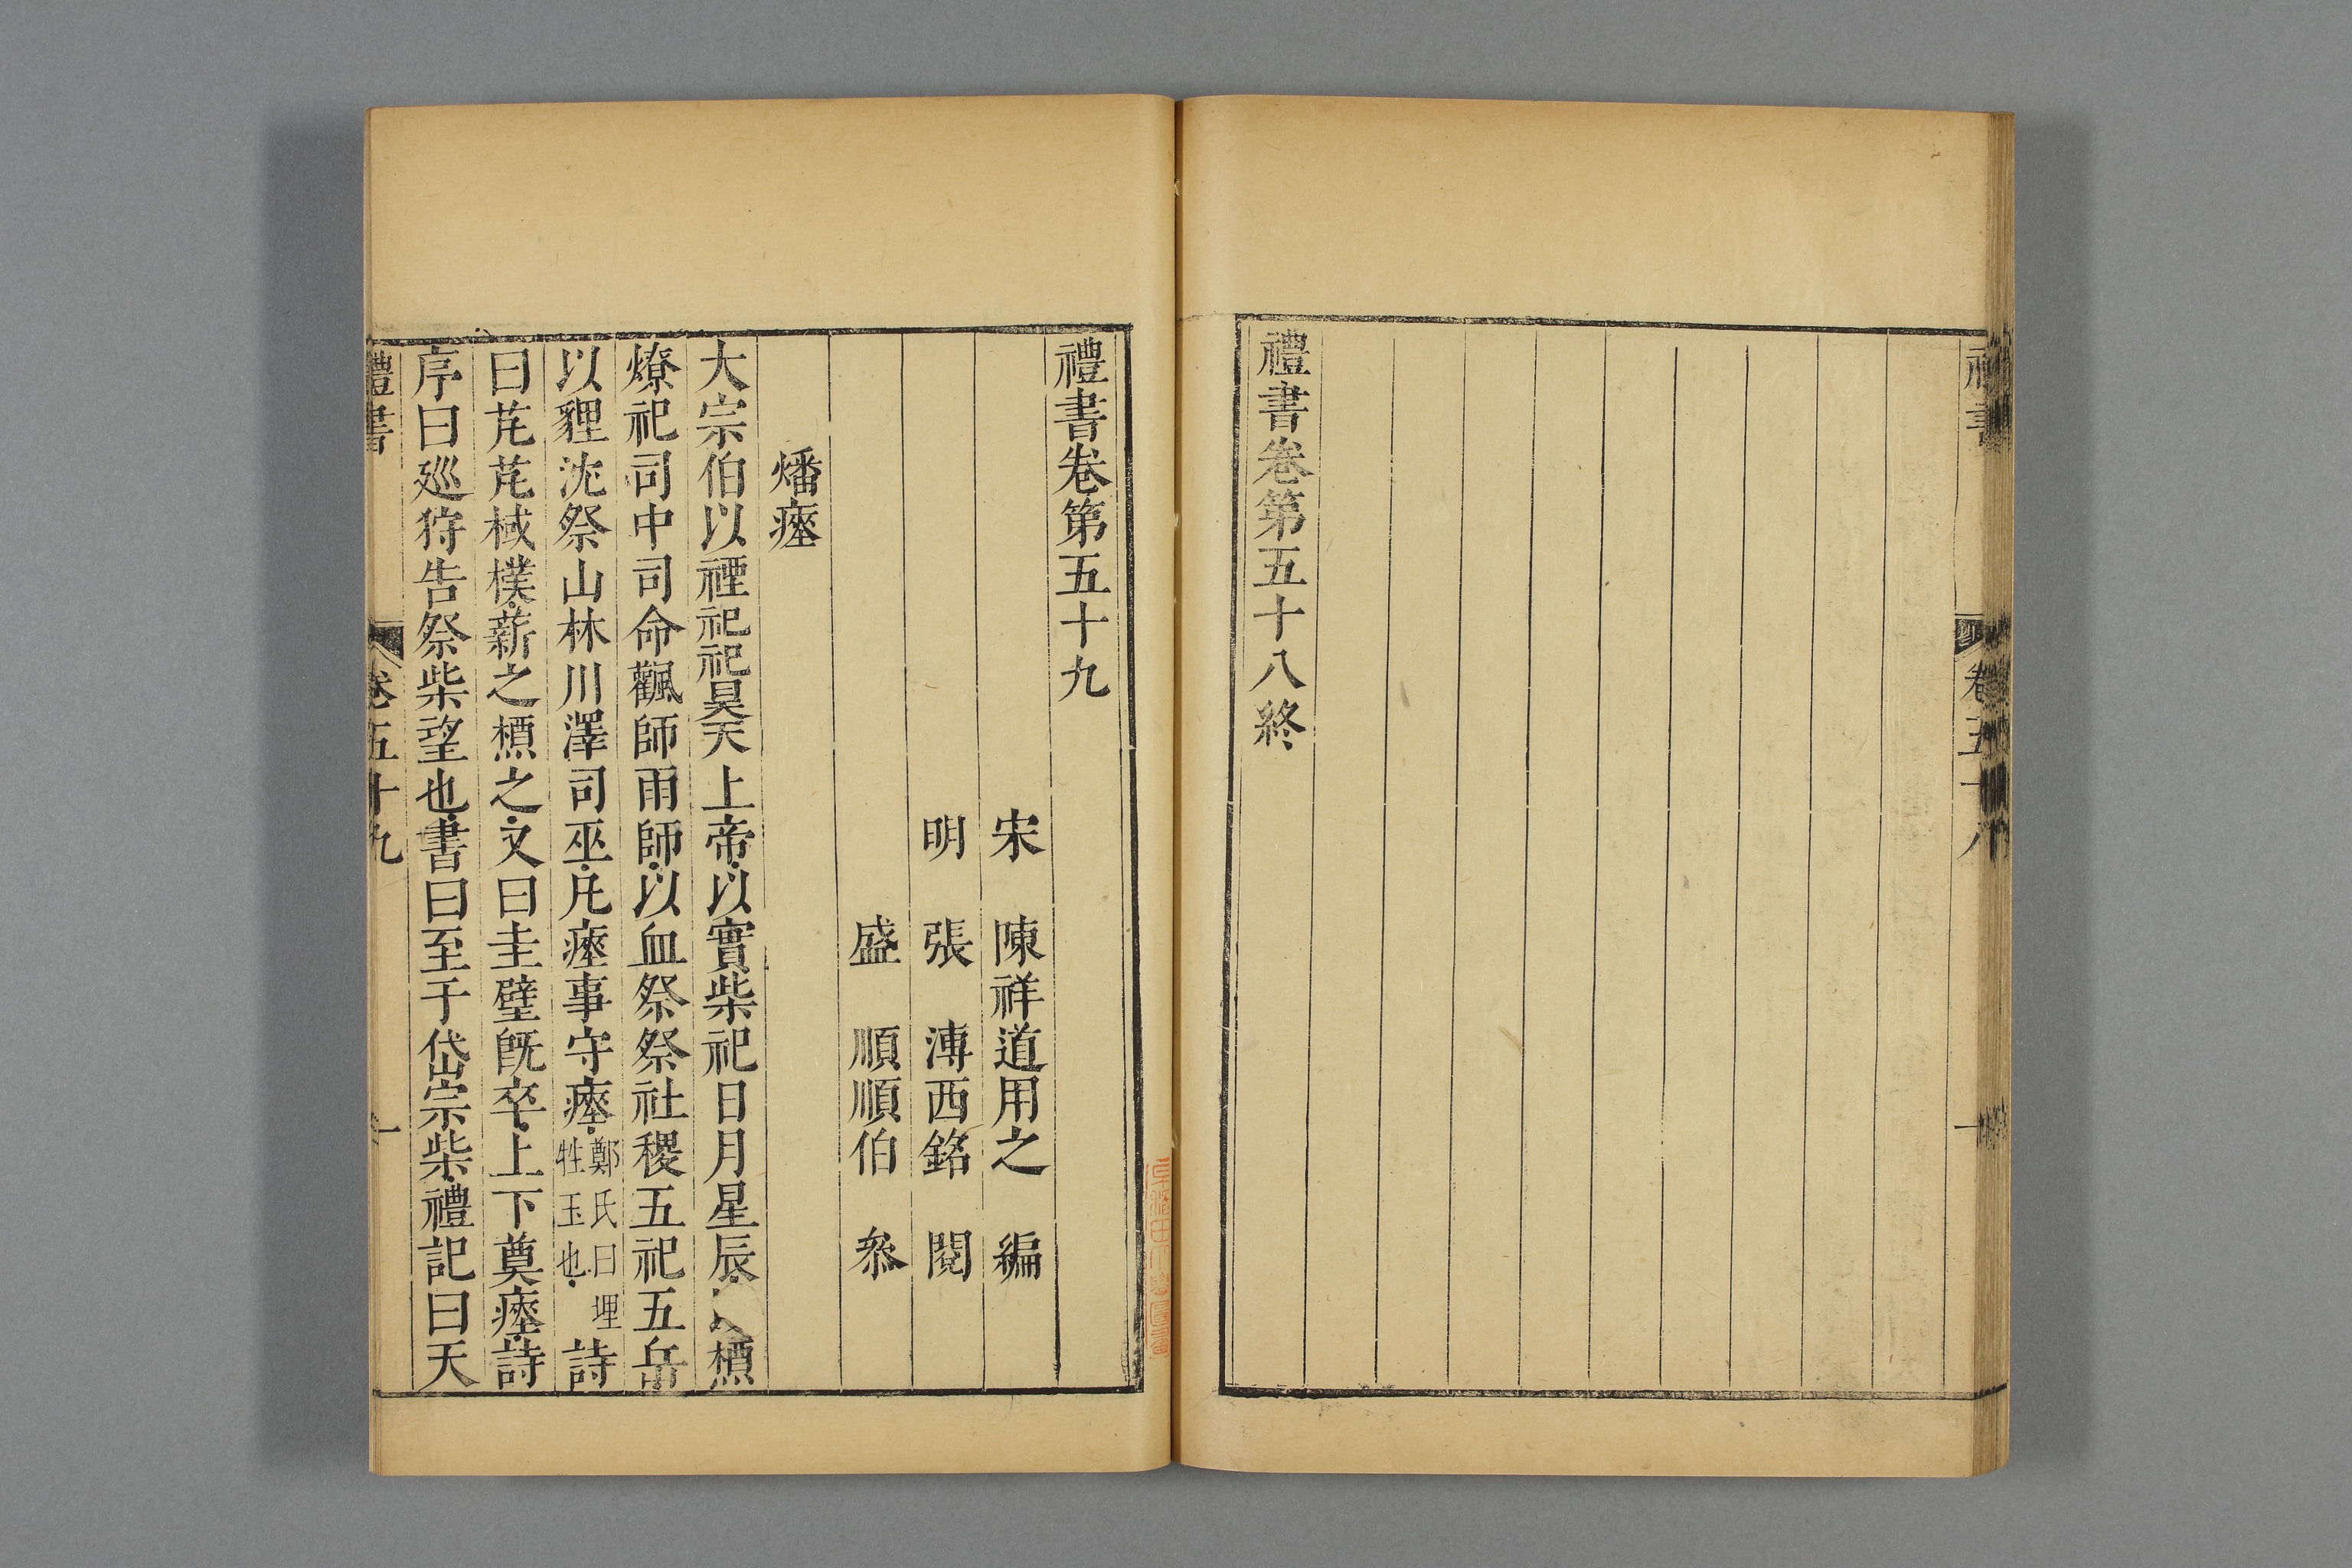 禮書
卷五十八
一
禮書卷第五十八終
禮書卷第五十九
宋　陳祥道用之　編
明　張　溥西銘　閱
盛　順順伯　叅
燔瘞
大宗伯以禋祀祀昊天上帝以實柴祀日月星辰以槱
燎祀司中司命飌師雨師以血祭祭社稷五祀五嶽
以貍沈祭山林川澤司巫凡瘞事守瘞鄭氏曰埋牲玉也詩
曰芃芃棫樸薪之槱之又曰圭璧既卒上下奠瘞詩
序曰廵狩告祭柴望也書曰至于岱宗柴禮記曰天
禮書
卷五十九
一